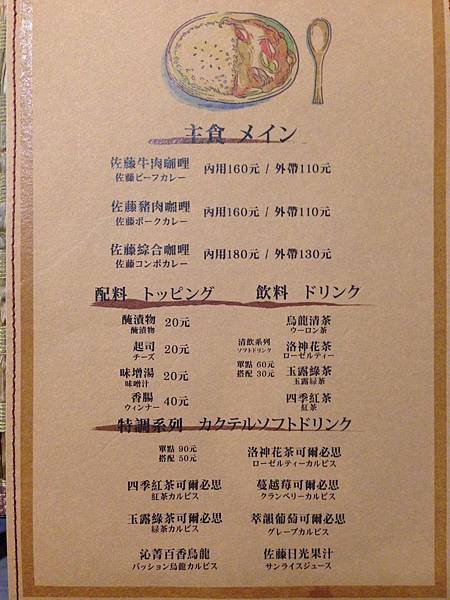 主食 メイン
佐藤牛肉咖哩 內用160元 / 外帶110元
佐藤ビーフカレー
佐藤豬肉咖哩 內用160元 / 外帶110元
佐藤ポークカレー
佐藤綜合咖哩 內用180元 / 外帶130元
佐藤コンボカレー
配料 トッピング
醃漬物 20元
醃漬物
起司 20元
チーズ
味增湯 20元
味噌汁
香腸 40元
ウィンナー
飲料 ドリンク
清飲系列
ソフトドリンク
單點 60元
搭配 30元
烏龍清茶
ウーロン茶
洛神花茶
ローゼルティー
玉露綠茶
玉露緑茶
四季紅茶
紅茶
特調系列 カクテルソフトドリンク
單點 90元
搭配 50元
洛神花茶可爾必思
ローゼルティーカルピス
四季紅茶可爾必思
紅茶カルピス
蔓越莓可爾必思
クランベリーカルピス
玉露綠茶可爾必思
緑茶カルピス
萃韻葡萄可爾必思
グレープカルピス
沁菁百香烏龍
パッション烏龍カルピス
佐藤日光果汁
サンライズジュース